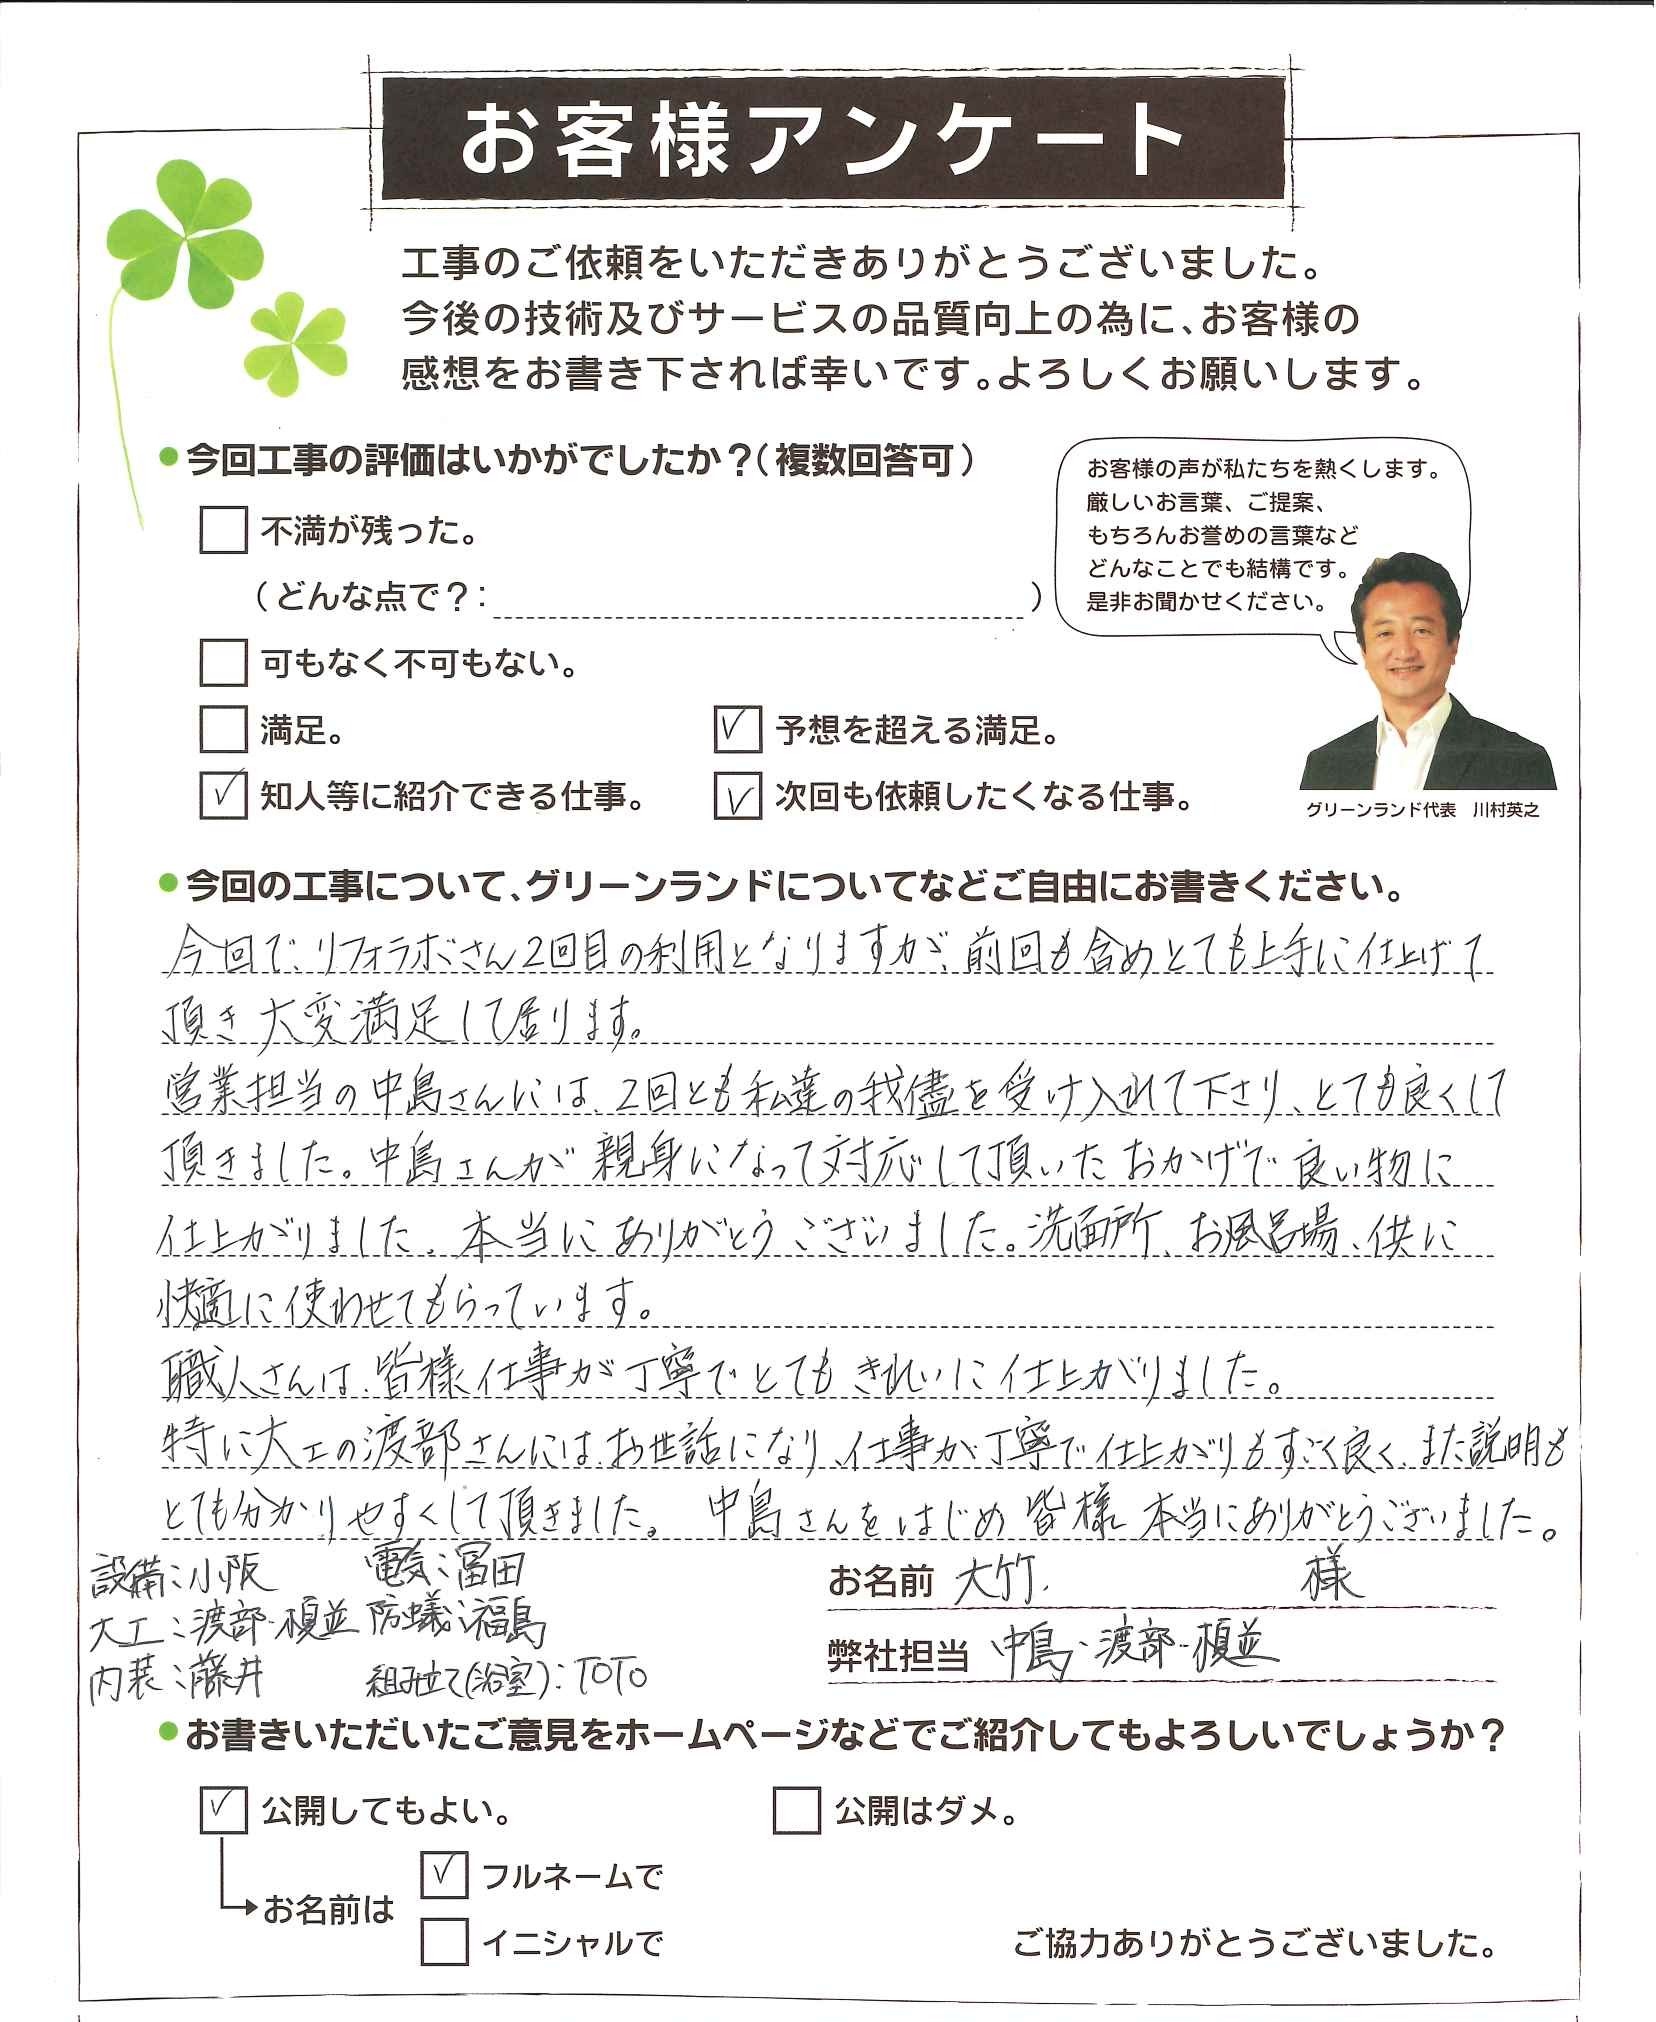 お客様アンケート
工事のご依頼をいただきありがとうございました。
今後の技術及びサービスの品質向上の為に、お客様の
感想をお書き下されば幸いです。よろしくお願いします。
●今回工事の評価はいかがでしたか？（複数回答可）
お客様の声が私たちを熱くします。
厳しいお言葉、ご提案、
もちろんお誉めの言葉など
どんなことでも結構です。
是非お聞かせください。
グリーンランド代表　川村英之
不満が残った。
（どんな点で？：　　　）
可もなく不可もない。
満足。
✓ 予想を超える満足。
✓ 知人等に紹介できる仕事。
✓ 次回も依頼したくなる仕事。
●今回の工事について、グリーンランドについてなどご自由にお書きください。
今回で、リフォラボさん2回目の利用となりますが、前回も含めとても上手に仕上げて
頂き大変満足して居ります。
営業担当の中島さんには、2回とも私達の我儘を受け入れて下さり、とても良くして
頂きました。中島さんが親身になって対応して頂いたおかげで良い物に
仕上がりました。本当にありがとうございました。洗面所、お風呂場、供に
快適に使わせてもらっています。
職人さんは、皆様仕事が丁寧でとてもきれいに仕上がりました。
特に大工の渡部さんには、お世話になり、仕事が丁寧で仕上がりもすごく良く、また説明も
とても分かりやすくして頂きました。中島さんをはじめ皆様本当にありがとうございました。
設備：小阪　電気：冨田
大工：渡部・榎並　防蟻：福島
内装：藤井　組み立て(浴室)：TOTO
お名前　大竹　様
弊社担当　中島・渡部・榎並
●お書きいただいたご意見をホームページなどでご紹介してもよろしいでしょうか？
✓ 公開してもよい。　公開はダメ。
お名前は
✓ フルネームで
イニシャルで
ご協力ありがとうございました。